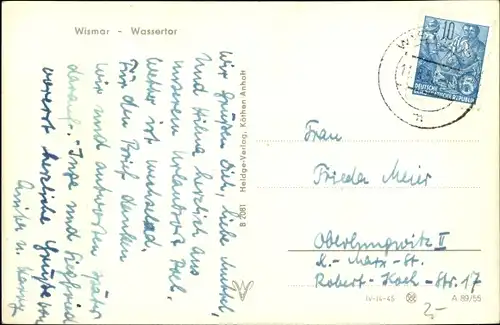 Wismar - Wassertor
Wir grüßen Dich, liebe Muttel,
und Hilma herzlich aus
unserem Urlaubsort Poel.
Wetter ist wechselnd.
Für den Brief danken
wir und antworten später
darauf. - Inge und Siegfried
vorerst herzliche Grüße von
u.
Heldge-Verlag, Köthen Anhalt
B 2081
10
DEUTSCHE
DEMOKRATISCHE REPUBLIK
Frau
Frieda Meier
Oberlungwitz II
K.-Marx-St.
Robert-Koch-Str. 17
IV-14-45
A 89/55
2,-